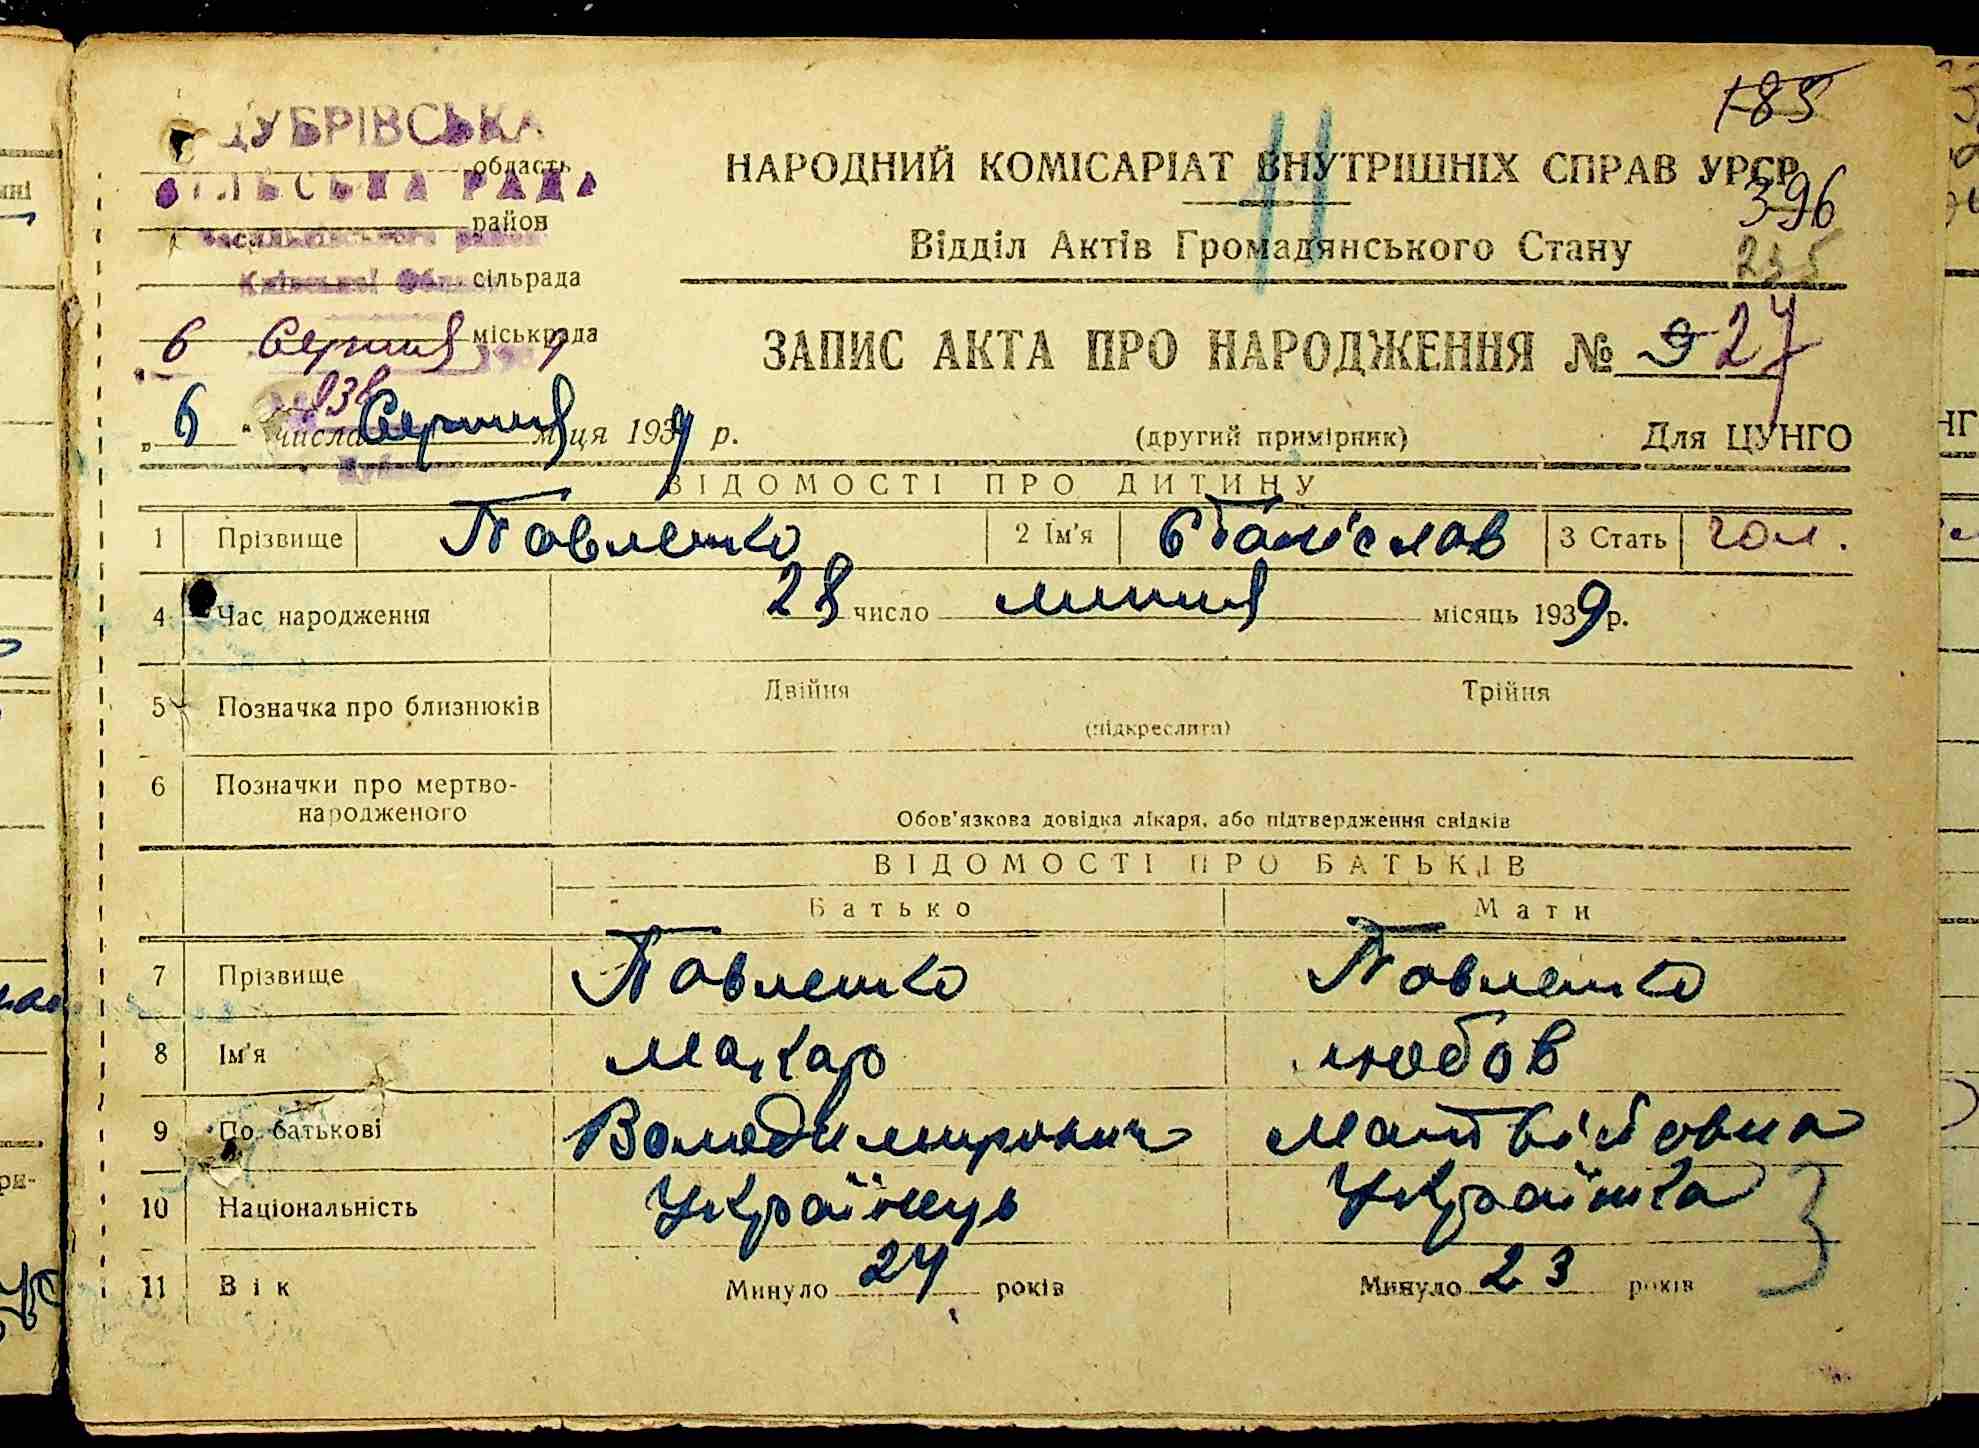 ДУБРІВСЬКА
область
СІЛЬСЬКА РАДА
район
Васильківського району
Київської Обл.
сільрада
6 Серпня
міськрада
193
185
НАРОДНИЙ КОМІСАРІАТ ВНУТРІШНІХ СПРАВ УРСР
396
Відділ Актів Громадянського Стану
235
11
ЗАПИС АКТА ПРО НАРОДЖЕННЯ № 9 27
„6“ числа Серпня м-ця 1939 р.
(другий примірник)
Для ЦУНГО
ВІДОМОСТІ ПРО ДИТИНУ
1 Прізвище Павленко 2 Ім'я Станіслав 3 Стать чол.
4 Час народження 28 число липня місяць 1939 р.
5 Позначка про близнюків Двійня Трійня
(підкреслити)
6 Позначки про мертво-
народженого
Обов'язкова довідка лікаря, або підтвердження свідків
ВІДОМОСТІ ПРО БАТЬКІВ
Батько Мати
7 Прізвище Павленко Павленко
8 Ім'я Макар Любов
9 По батькові Володимирович Матвійовна
10 Національність Українець Українка
11 Вік Минуло 24 років Минуло 23 років